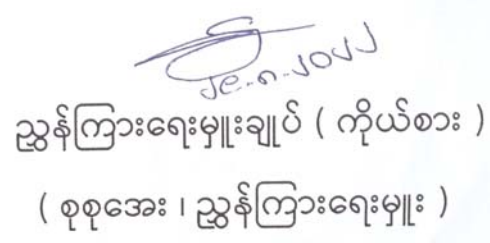 ၂၉.၈.၂၀၂၂
ညွှန်ကြားရေးမှူးချုပ် ( ကိုယ်စား )
( စုစုအေး ၊ ညွှန်ကြားရေးမှူး )